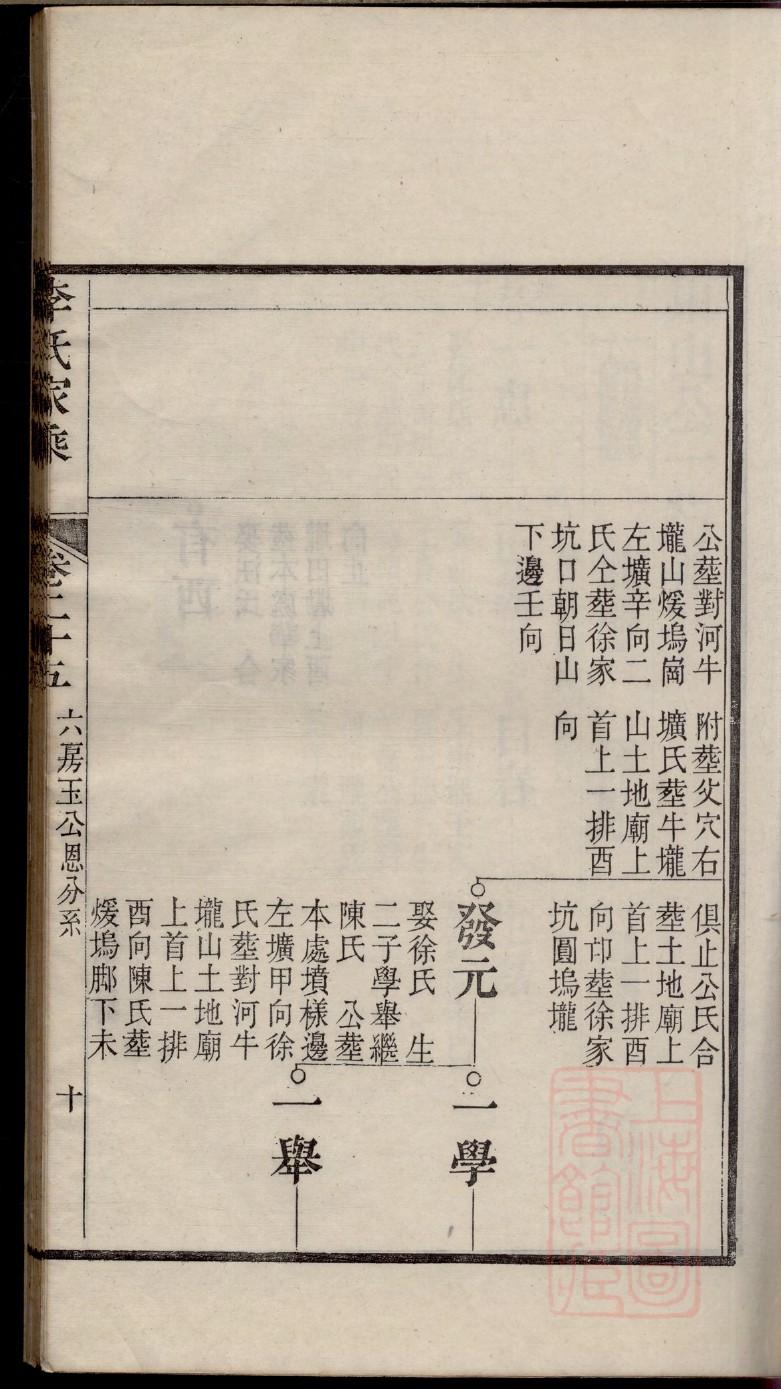 公塟對河牛
壠山煖塢崗
左壙辛向二
氏仝塟徐家
坑口朝日山
下邊壬向
附塟父穴右
壙氏塟牛壠
山土地廟上
首上一排酉
向
俱止公氏合
塟土地廟上
首上一排酉
向卬塟徐家
坑圓塢壠
發元
娶徐氏　生
二子學舉繼
陳氏　公塟
本處墳樣邊
左壙甲向徐
氏塟對河牛
壠山土地廟
上首上一排
酉向陳氏塟
煖塢脚下未
一學
一舉
李氏家乘
卷二十五
六房玉公恩分系
十
上海圖書館藏